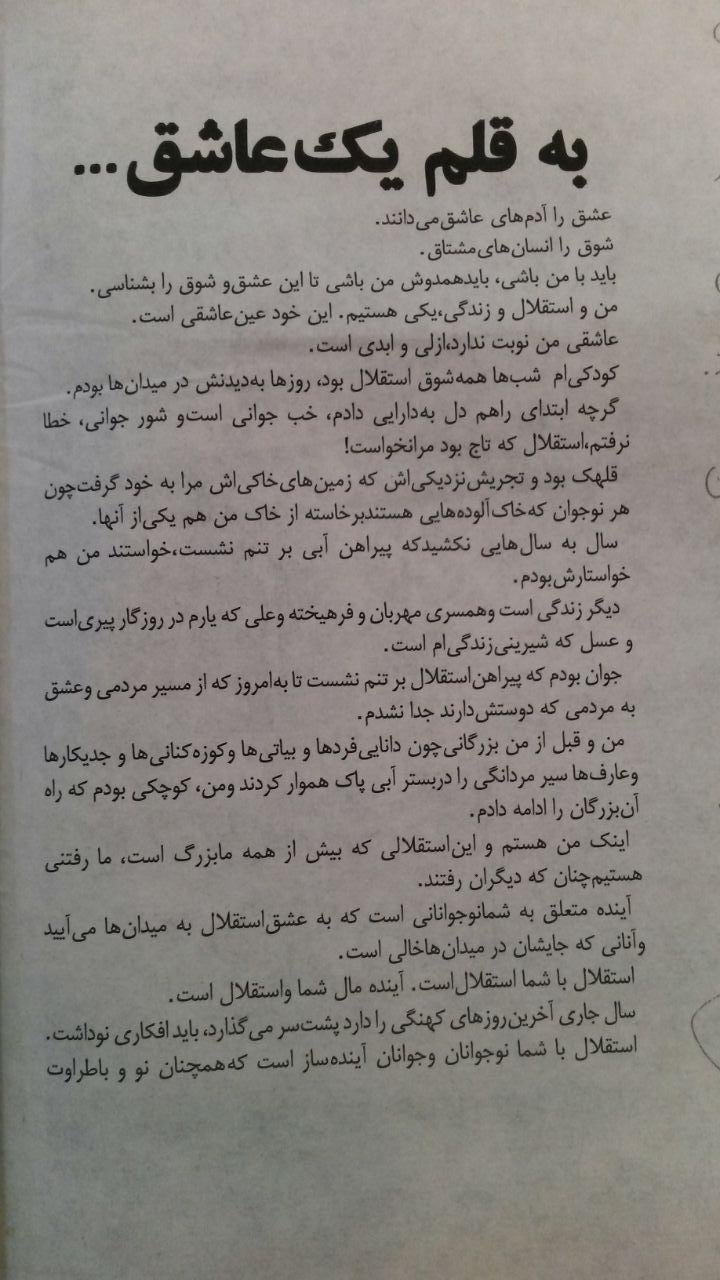 به قلم یک‌عاشق...
عشق را آدم‌های عاشق‌می‌دانند.
شوق را انسان‌های‌مشتاق.
باید با من باشی، بایدهمدوش من باشی تا این عشق‌و شوق را بشناسی.
من و استقلال و زندگی،یکی هستیم. این خود عین‌عاشقی است.
عاشقی من نوبت ندارد،ازلی و ابدی است.
کودکی‌ام شب‌ها همه‌شوق استقلال بود، روزها به‌دیدنش در میدان‌ها بودم.
گرچه ابتدای راهم دل به‌دارایی دادم، خب جوانی است‌و شور جوانی، خطا
نرفتم،استقلال که تاج بود مرانخواست!
قلهک بود و تجریش‌نزدیکی‌اش که زمین‌های‌خاکی‌اش مرا به خود گرفت‌چون
هر نوجوان که‌خاک‌آلوده‌هایی هستندبرخاسته از خاک من هم یکی‌از آنها.
سال به سال‌هایی نکشیدکه پیراهن آبی بر تنم نشست،خواستند من هم
خواستارش‌بودم.
دیگر زندگی است وهمسری مهربان و فرهیخته وعلی که یارم در روزگار پیری‌است
و عسل که شیرینی‌زندگی‌ام است.
جوان بودم که پیراهن‌استقلال بر تنم نشست تا به‌امروز که از مسیر مردمی وعشق
به مردمی که دوستش‌دارند جدا نشدم.
من و قبل از من بزرگانی‌چون دانایی‌فردها و بیاتی‌ها وکوزه‌کنانی‌ها و جدیکارها
وعارف‌ها سیر مردانگی را دربستر آبی پاک هموار کردند ومن، کوچکی بودم که راه
آن‌بزرگان را ادامه دادم.
اینک من هستم و این‌استقلالی که بیش از همه مابزرگ است، ما رفتنی
هستیم‌چنان که دیگران رفتند.
آینده متعلق به شمانوجوانانی است که به عشق‌استقلال به میدان‌ها می‌آیید
وآنانی که جایشان در میدان‌هاخالی است.
استقلال با شما استقلال‌است. آینده مال شما واستقلال است.
سال جاری آخرین‌روزهای کهنگی را دارد پشت‌سر می‌گذارد، باید افکاری نوداشت.
استقلال با شما نوجوانان وجوانان آینده‌ساز است که‌همچنان نو و باطراوت